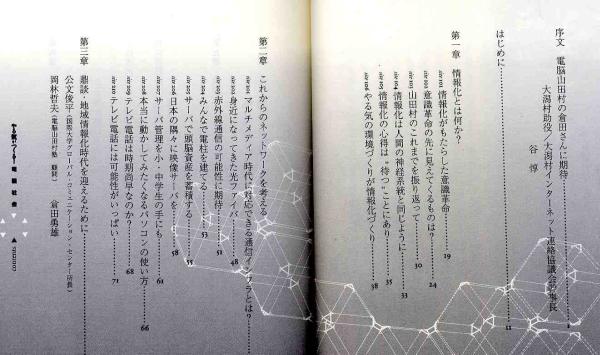 序文 電脳山田村の倉田さんに期待
大潟村助役/大潟村インターネット連絡協議会理事長
谷 惇
はじめに 11
第一章 情報化とは何か?
情報化がもたらした意識革命 19
意識革命の先に見えてくるものは? 24
山田村のこれまでを振り返って 30
情報化は人間の神経系統と同じように 33
情報化の心得は“待つ”ことにあり 35
やる気の環境づくりが情報化づくり 38
第二章 これからのネットワークを考える
マルチメディア時代に対応できる通信インフラとは?
身近になってきた光ファイバー 48
赤外線通信の可能性に期待 51
みんなで電柱を建てる 53
サーバで頭脳資産を蓄積する 55
日本の隅々に映像サーバを 58
サーバ管理を小・中学生の手にも 61
本当に動かしてみたくなるパソコンの使い方 66
テレビ電話は時期尚早なのか? 68
テレビ電話には可能性がいっぱい 71
第三章 鼎談 地域情報化時代を迎えるために
公文俊平(国際大学グローバル・コミュニケーション・センター所長)
岡林哲夫(電脳山田村塾 顧問) 倉田勇雄